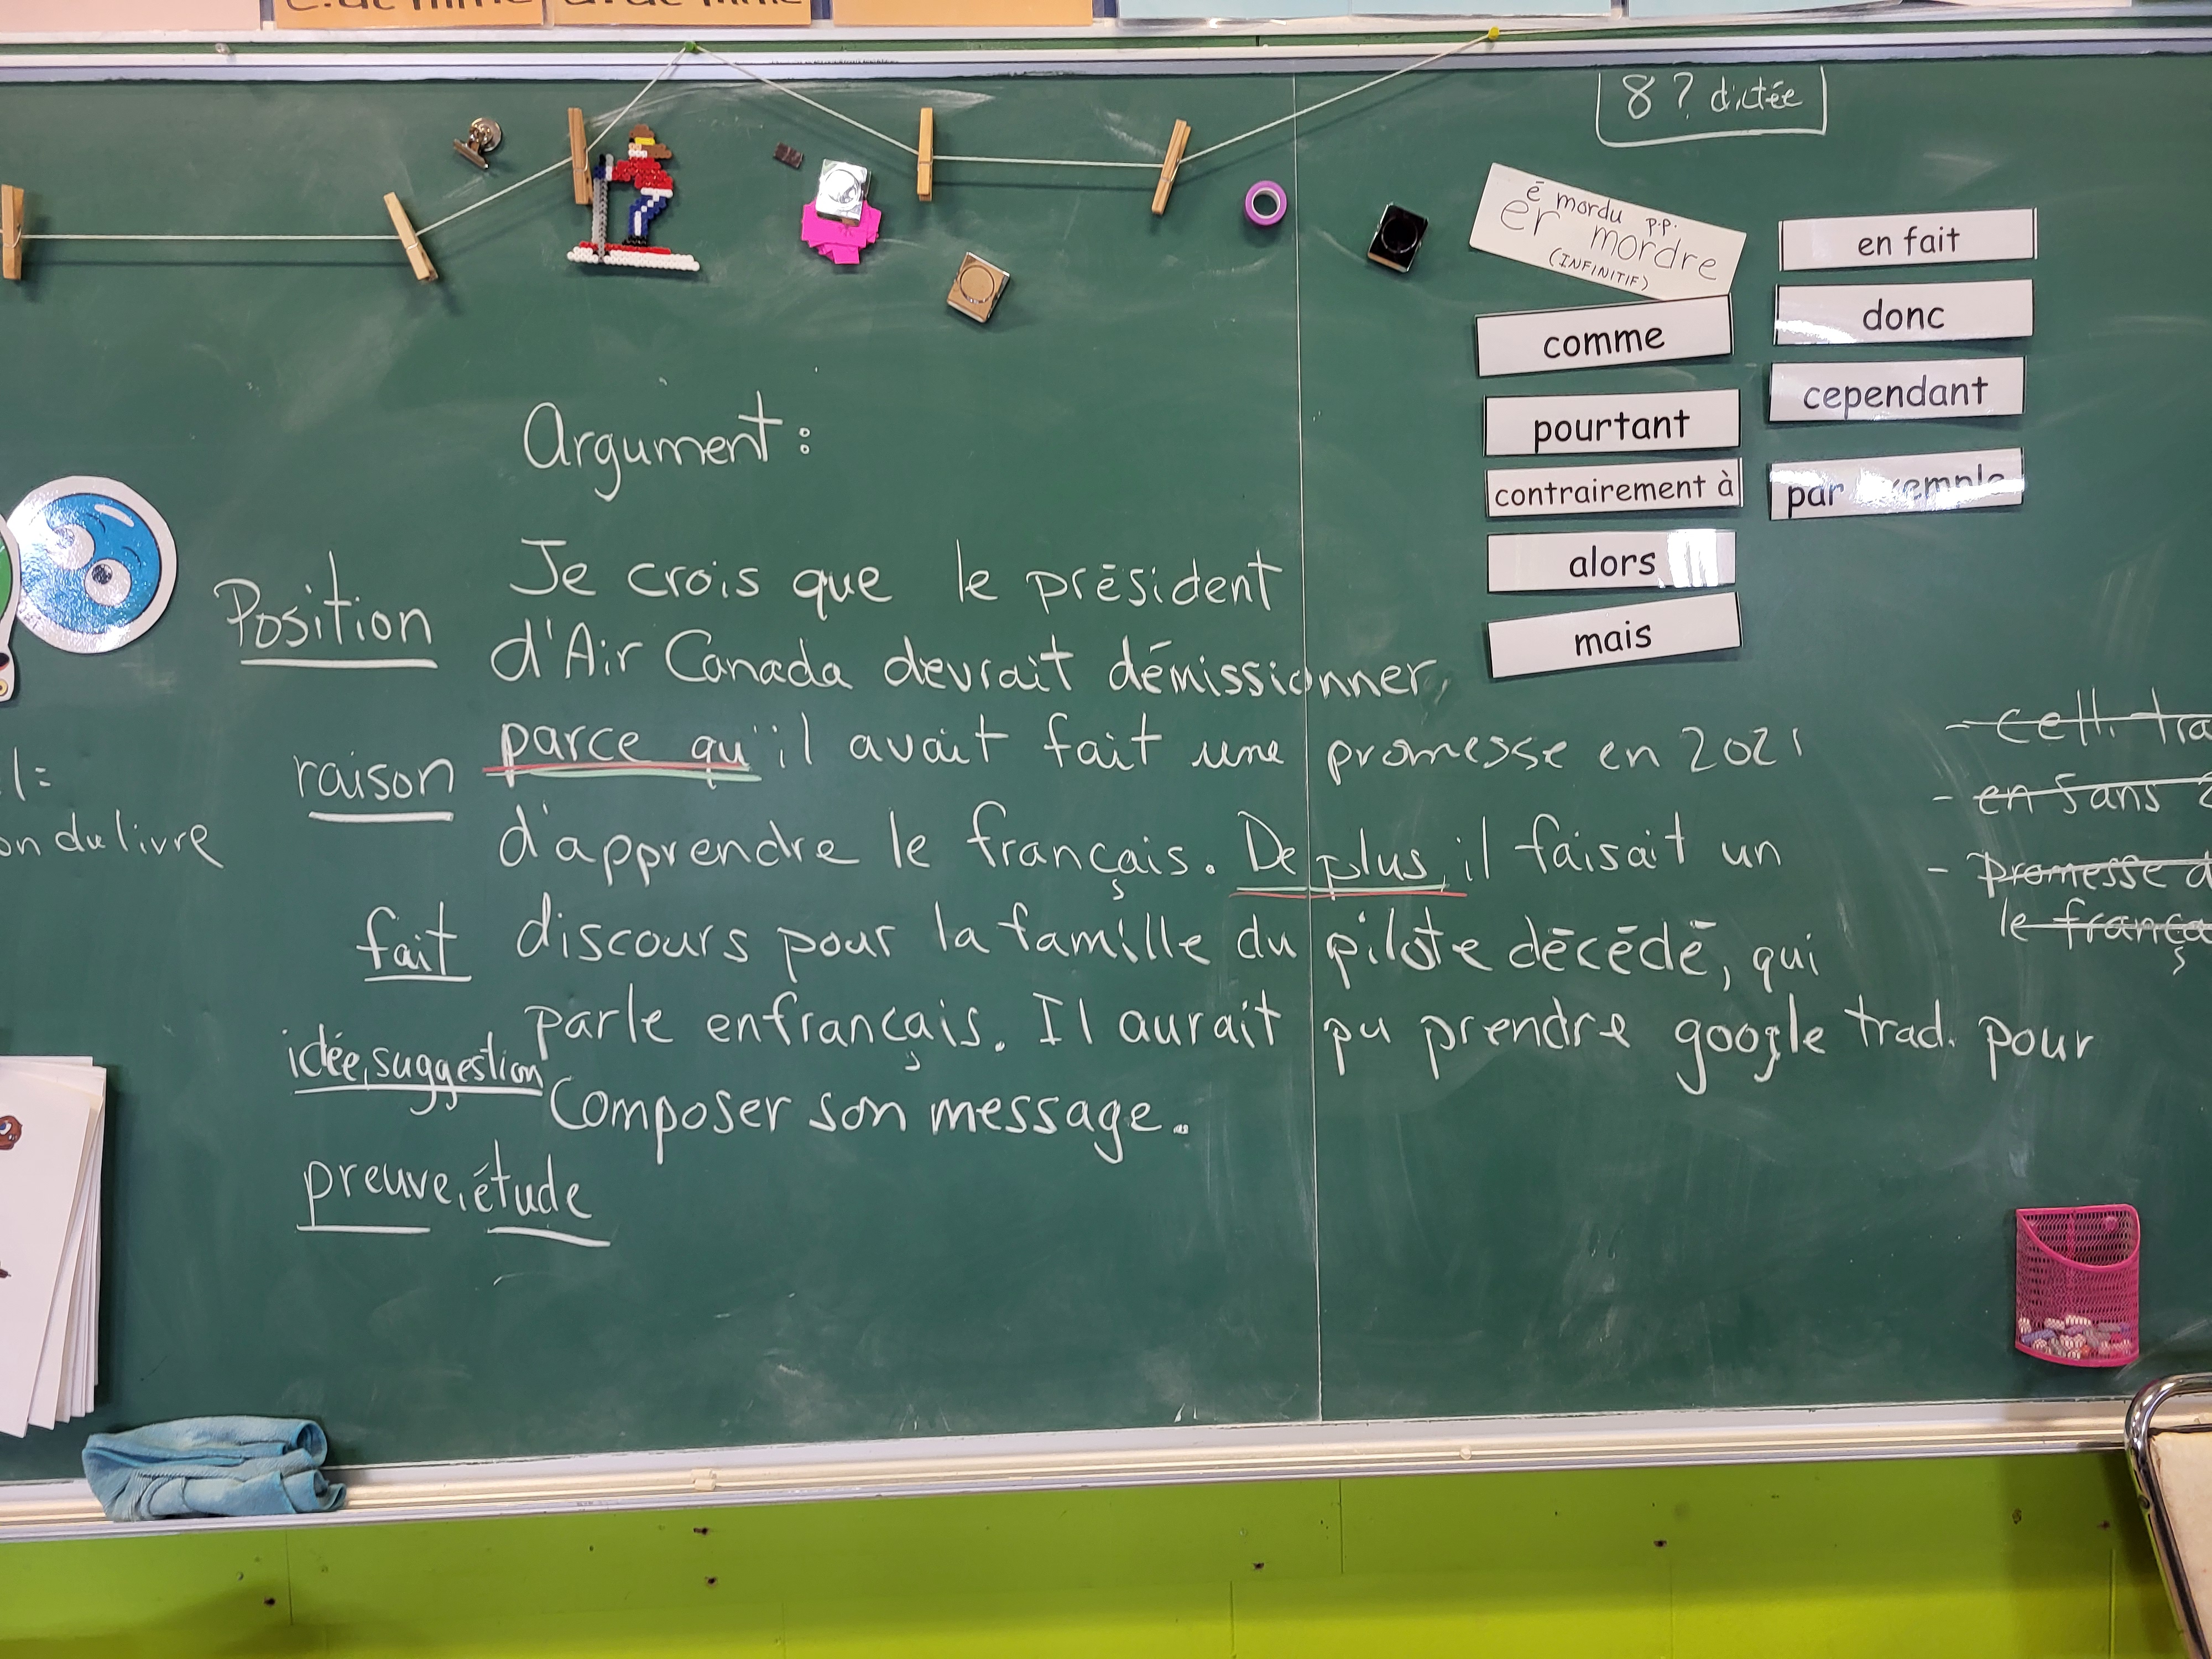 8 ? dictée
é mordu p.p.
er mordre
(INFINITIF)
en fait
comme
donc
pourtant
cependant
contrairement à
par exemple
alors
mais
Argument :
Position
Je crois que le président
d'Air Canada devrait démissionner,
raison
parce qu'il avait fait une promesse en 2021
d'apprendre le français. De plus, il faisait un
fait
discours pour la famille du pilote décédé, qui
parle en français. Il aurait pu prendre google trad. pour
idée, suggestion
composer son message.
preuve, étude
du livre
- en 5 ans
- promesse
le